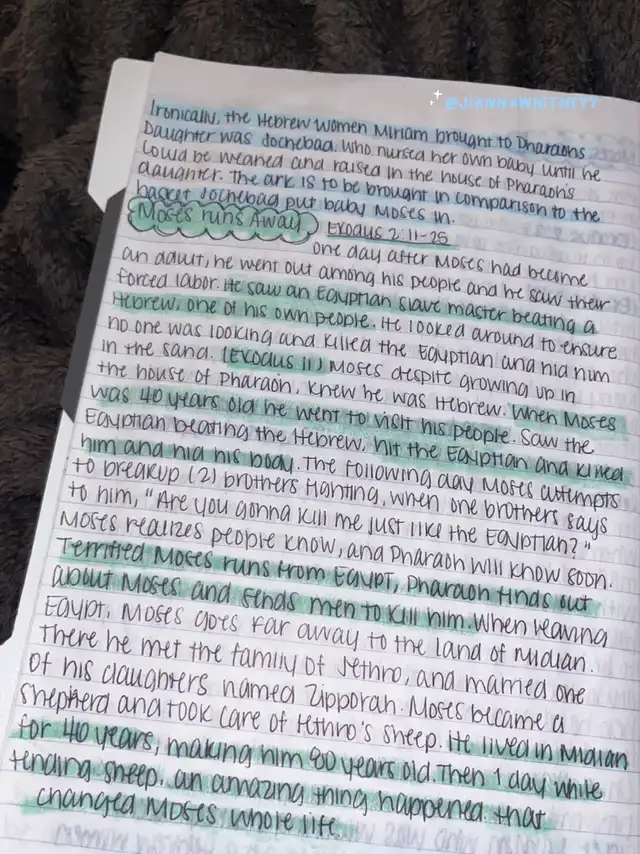 @JIANNAWHITNEYY
Ironically, the Hebrew women Miriam brought to Pharaohs
Daughter was Jochebad. Who nursed her own baby until he
could be weaned and raised in the house of Pharaoh's
daughter. The ark is to be brought in comparison to the
basket Jochebad put baby Moses in.
Moses runs Away Exodus 2:11-25
one day after Moses had become
an adult, he went out among his people and he saw their
forced labor. He saw an Egyptian slave master beating a
Hebrew, one of his own people. He looked around to ensure
no one was looking and killed the Egyptian and hid him
in the sand. (Exodus 11) Moses despite growing up in
the house of Pharaoh, knew he was Hebrew. When Moses
was 40 years old he went to visit his people. Saw the
Egyptian beating the Hebrew, hit the Egyptian and killed
him and hid his body. The following day Moses attempts
to breakup (2) brothers fighting, when one brothers says
to him, "Are you gonna kill me just like the Egyptian?"
Moses realizes people know, and Pharaoh will know soon.
Terrified Moses runs from Egypt, Pharaoh finds out
about Moses and sends men to kill him. When leaving
Egypt, Moses goes far away to the land of Midian.
There he met the family of Jethro, and married one
of his daughters named Zipporah. Moses became a
shepherd and took care of Jethro's sheep. He lived in Midian
for 40 years, making him 80 years old. Then 1 day while
tending sheep, an amazing thing happened. that
changed Moses whole life.